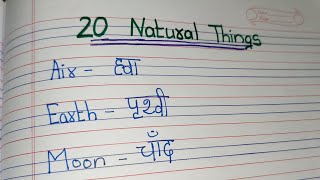 20 Natural Things
Air - हवा
Earth - पृथ्वी
Moon - चाँद